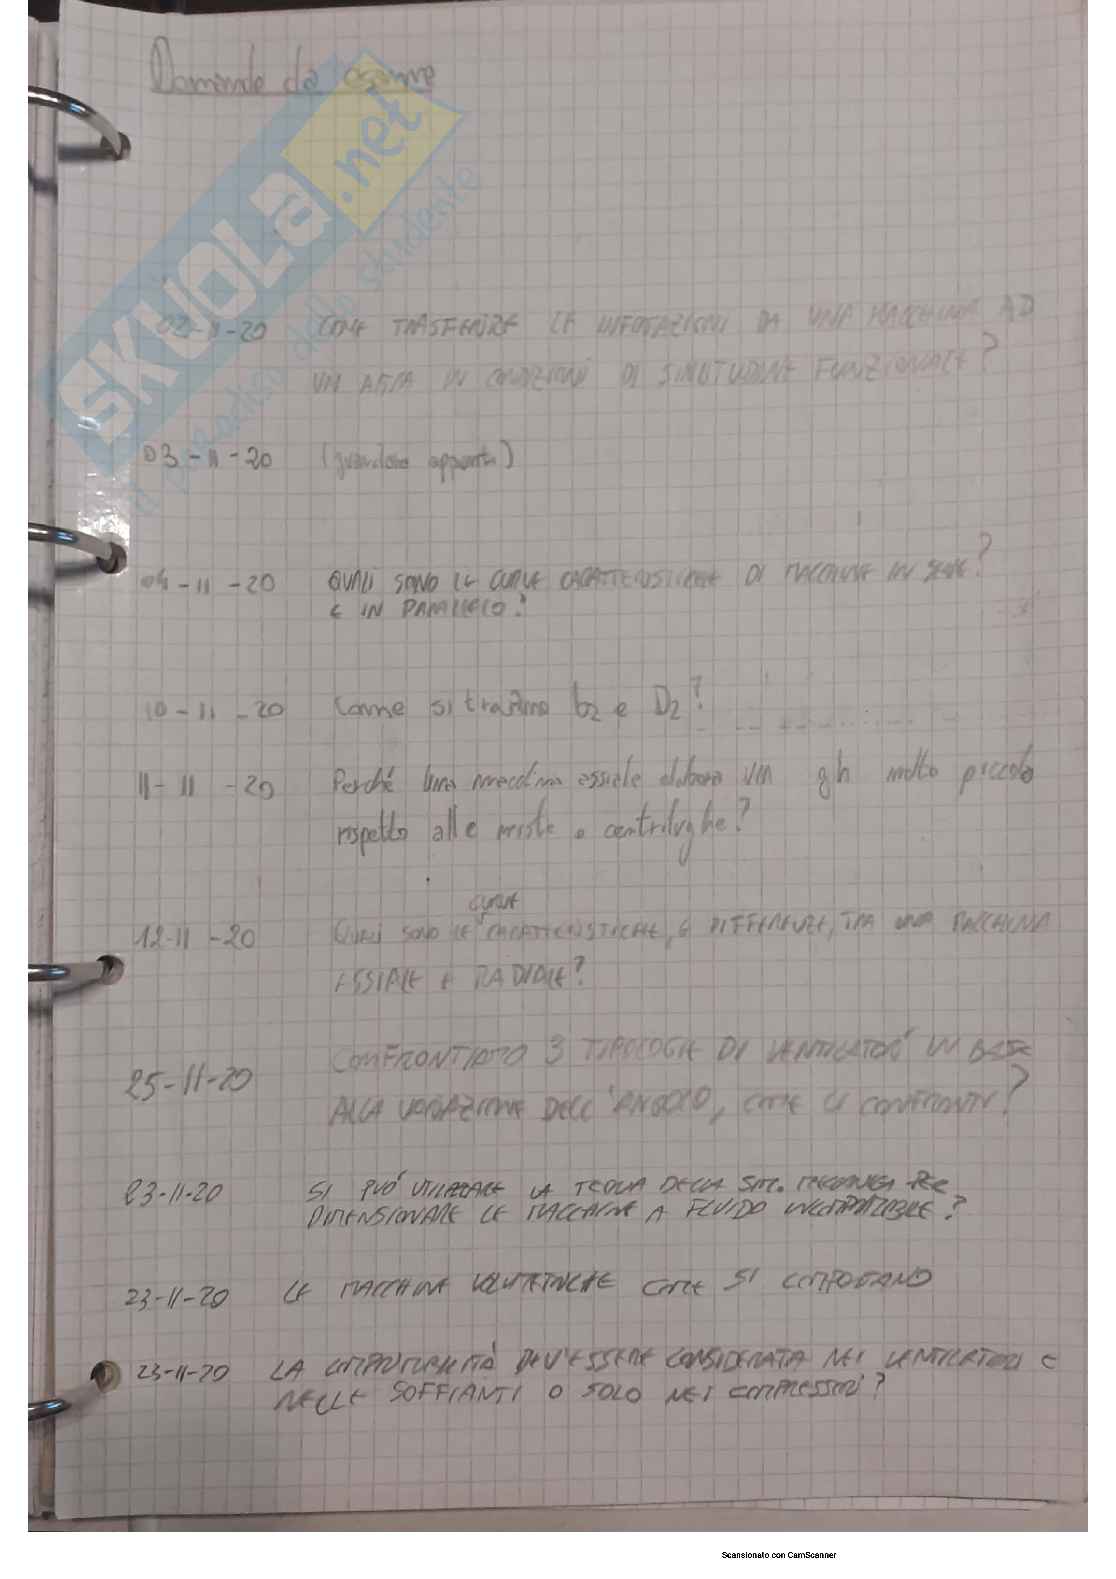 Domande da esame
SKUOLA.net
il paradiso dello studente
02-11-20 COME TRASFERIRE LE INFORMAZIONI DA UNA MACCHINA AD
UN ALTRA IN CONDIZIONI DI SIMILITUDINE FUNZIONALE?
03-11-20 (guardare appunti)
04-11-20 QUALI SONO LE CURVE CARATTERISTICHE DI MACCHINE IN SERIE?
E IN PARALLELO?
10-11-20 Come si trovano b2 e D2?
11-11-20 Perché una macchina assiale elabora un gh molto piccolo
rispetto alle miste o centrifughe?
curve
12-11-20 QUALI SONO LE CARATTERISTICHE, E DIFFERENZE, TRA UNA MACCHINA
ASSIALE E RADIALE?
25-11-20 CONFRONTIAMO 3 TIPOLOGIE DI VENTILATORI IN BASE
ALLA VARIAZIONE DELL'ANGOLO, COME LI CONFRONTI?
23-11-20 SI PUÓ UTILIZZARE LA TEORIA DELLA SIM. MECCANICA PER
DIMENSIONARE LE MACCHINE A FLUIDO INCOMPRIMIBILE?
23-11-20 LE MACCHINE VOLUMETRICHE COME SI COMPORTANO
23-11-20 LA COMPRIMIBILITÀ DEV'ESSERE CONSIDERATA NEI VENTILATORI E
NELLE SOFFIANTI O SOLO NEI COMPRESSORI?
Scansionato con CamScanner